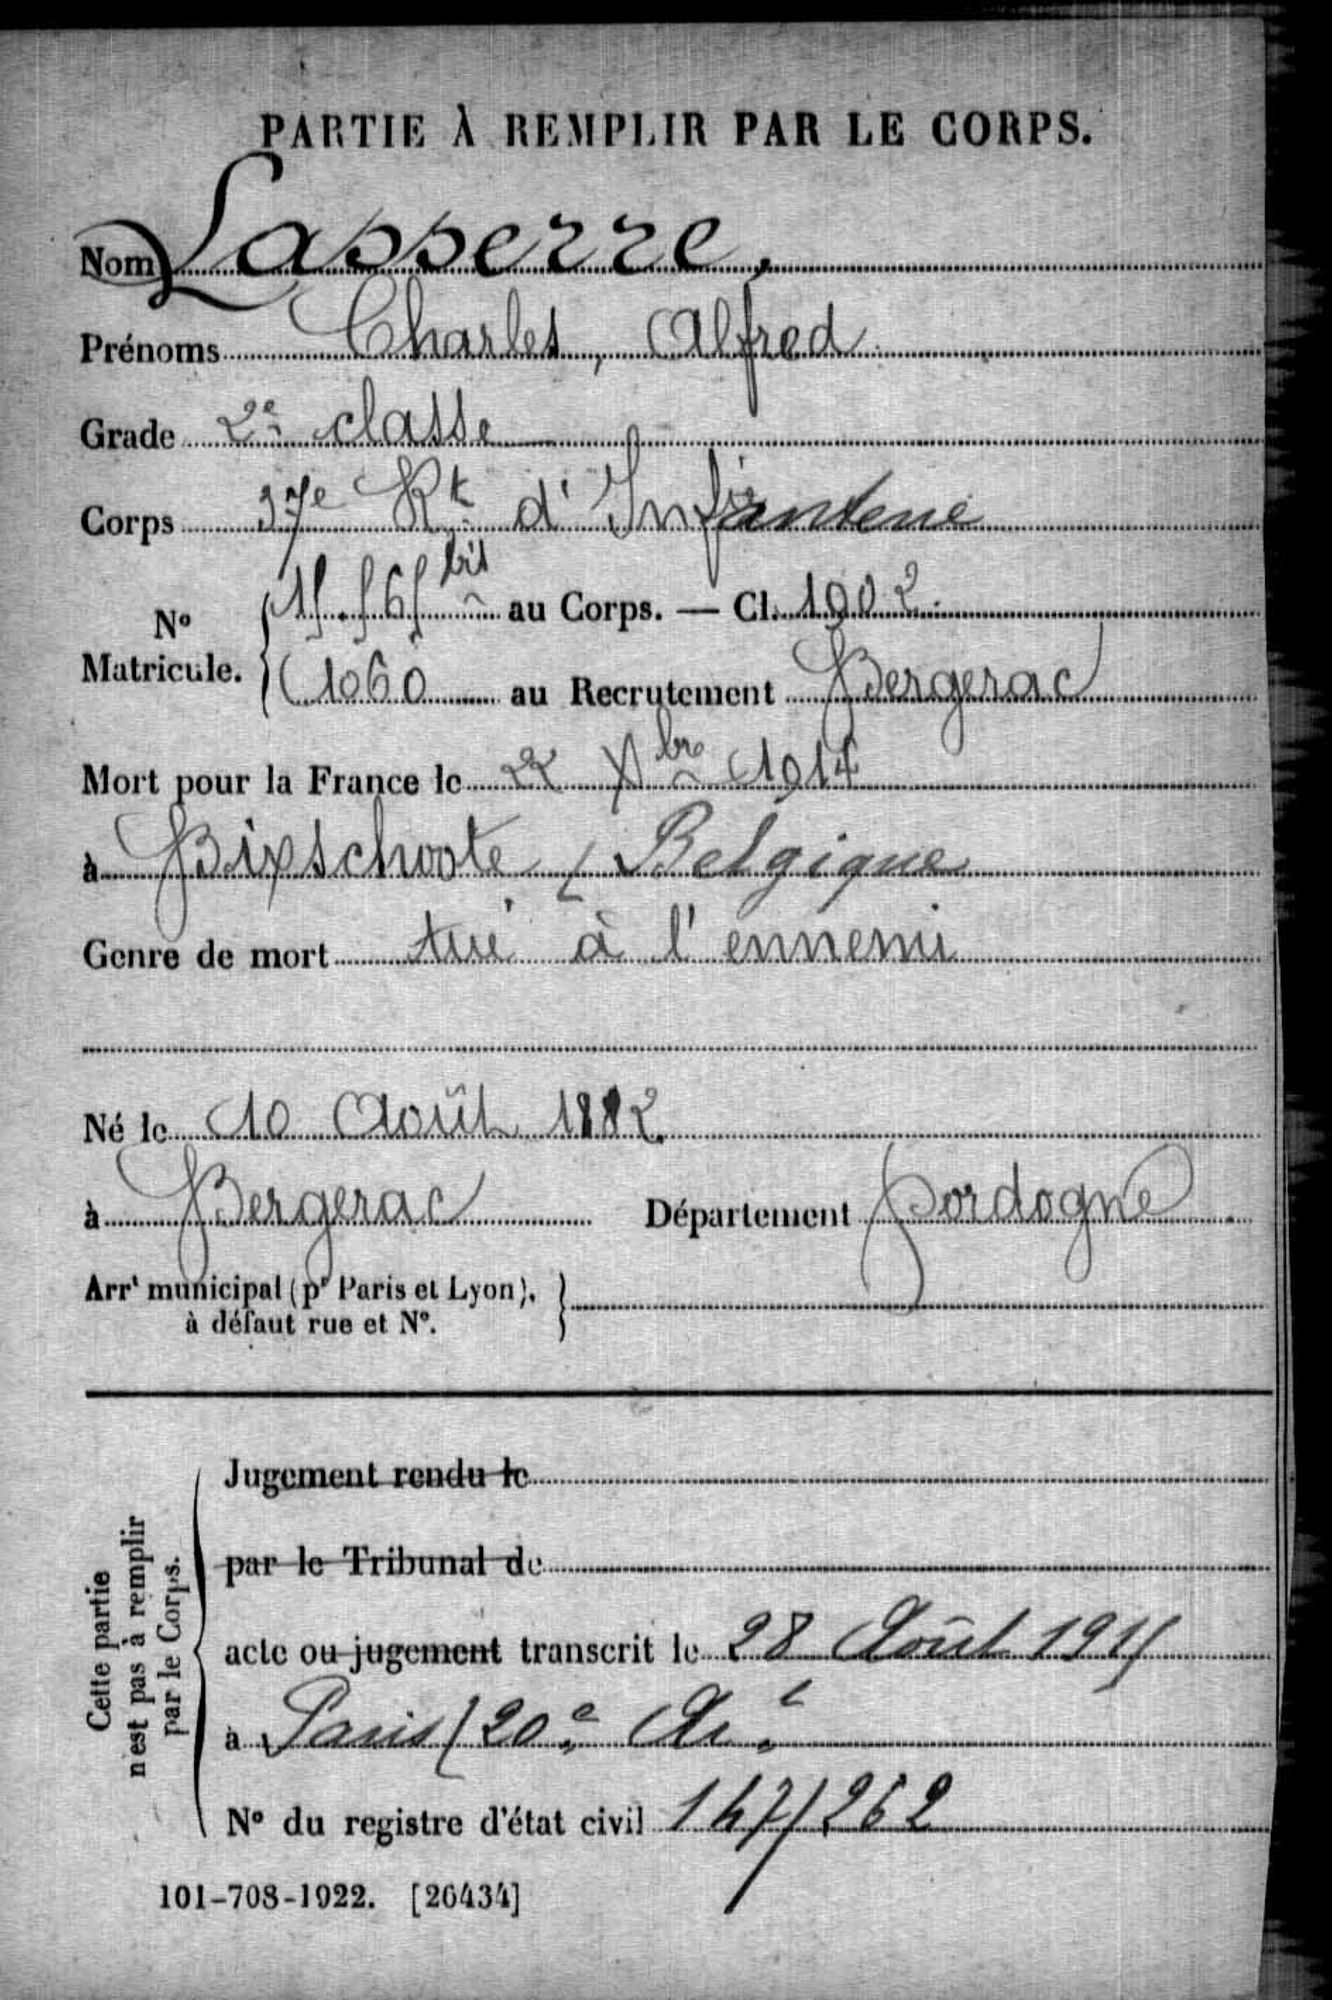 PARTIE À REMPLIR PAR LE CORPS.
Nom Lasserre,
Prénoms Charles, Alfred
Grade 2e classe
Corps 37e Rt d'Infanterie
No Matricule. bis au Corps. — Cl. 1902.
1060 au Recrutement Bergerac
Mort pour la France le 22 Xbre 1914
à Bixschoote ( Belgique
Genre de mort tué à l'ennemi
Né le 10 Août 1882
à Bergerac Département Dordogne
Arrt municipal (pr Paris et Lyon),
à défaut rue et No.
Cette partie
n'est pas à remplir
par le Corps.
Jugement rendu le
par le Tribunal de
acte ou jugement transcrit le 28 Août 1915
à Paris (20e Ar.t
No du registre d'état civil 147/262
101-708-1922. [26434]